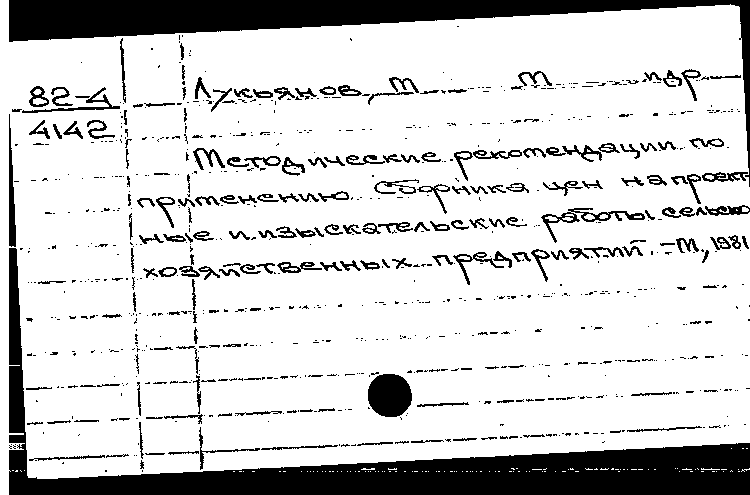 82-4
4142
Лукьянов, М М идр
Методические рекомендации по
применению Сборника цен на проект-
ные и изыскательские работы сельско
хозяйственных предприятий. -М, 1981